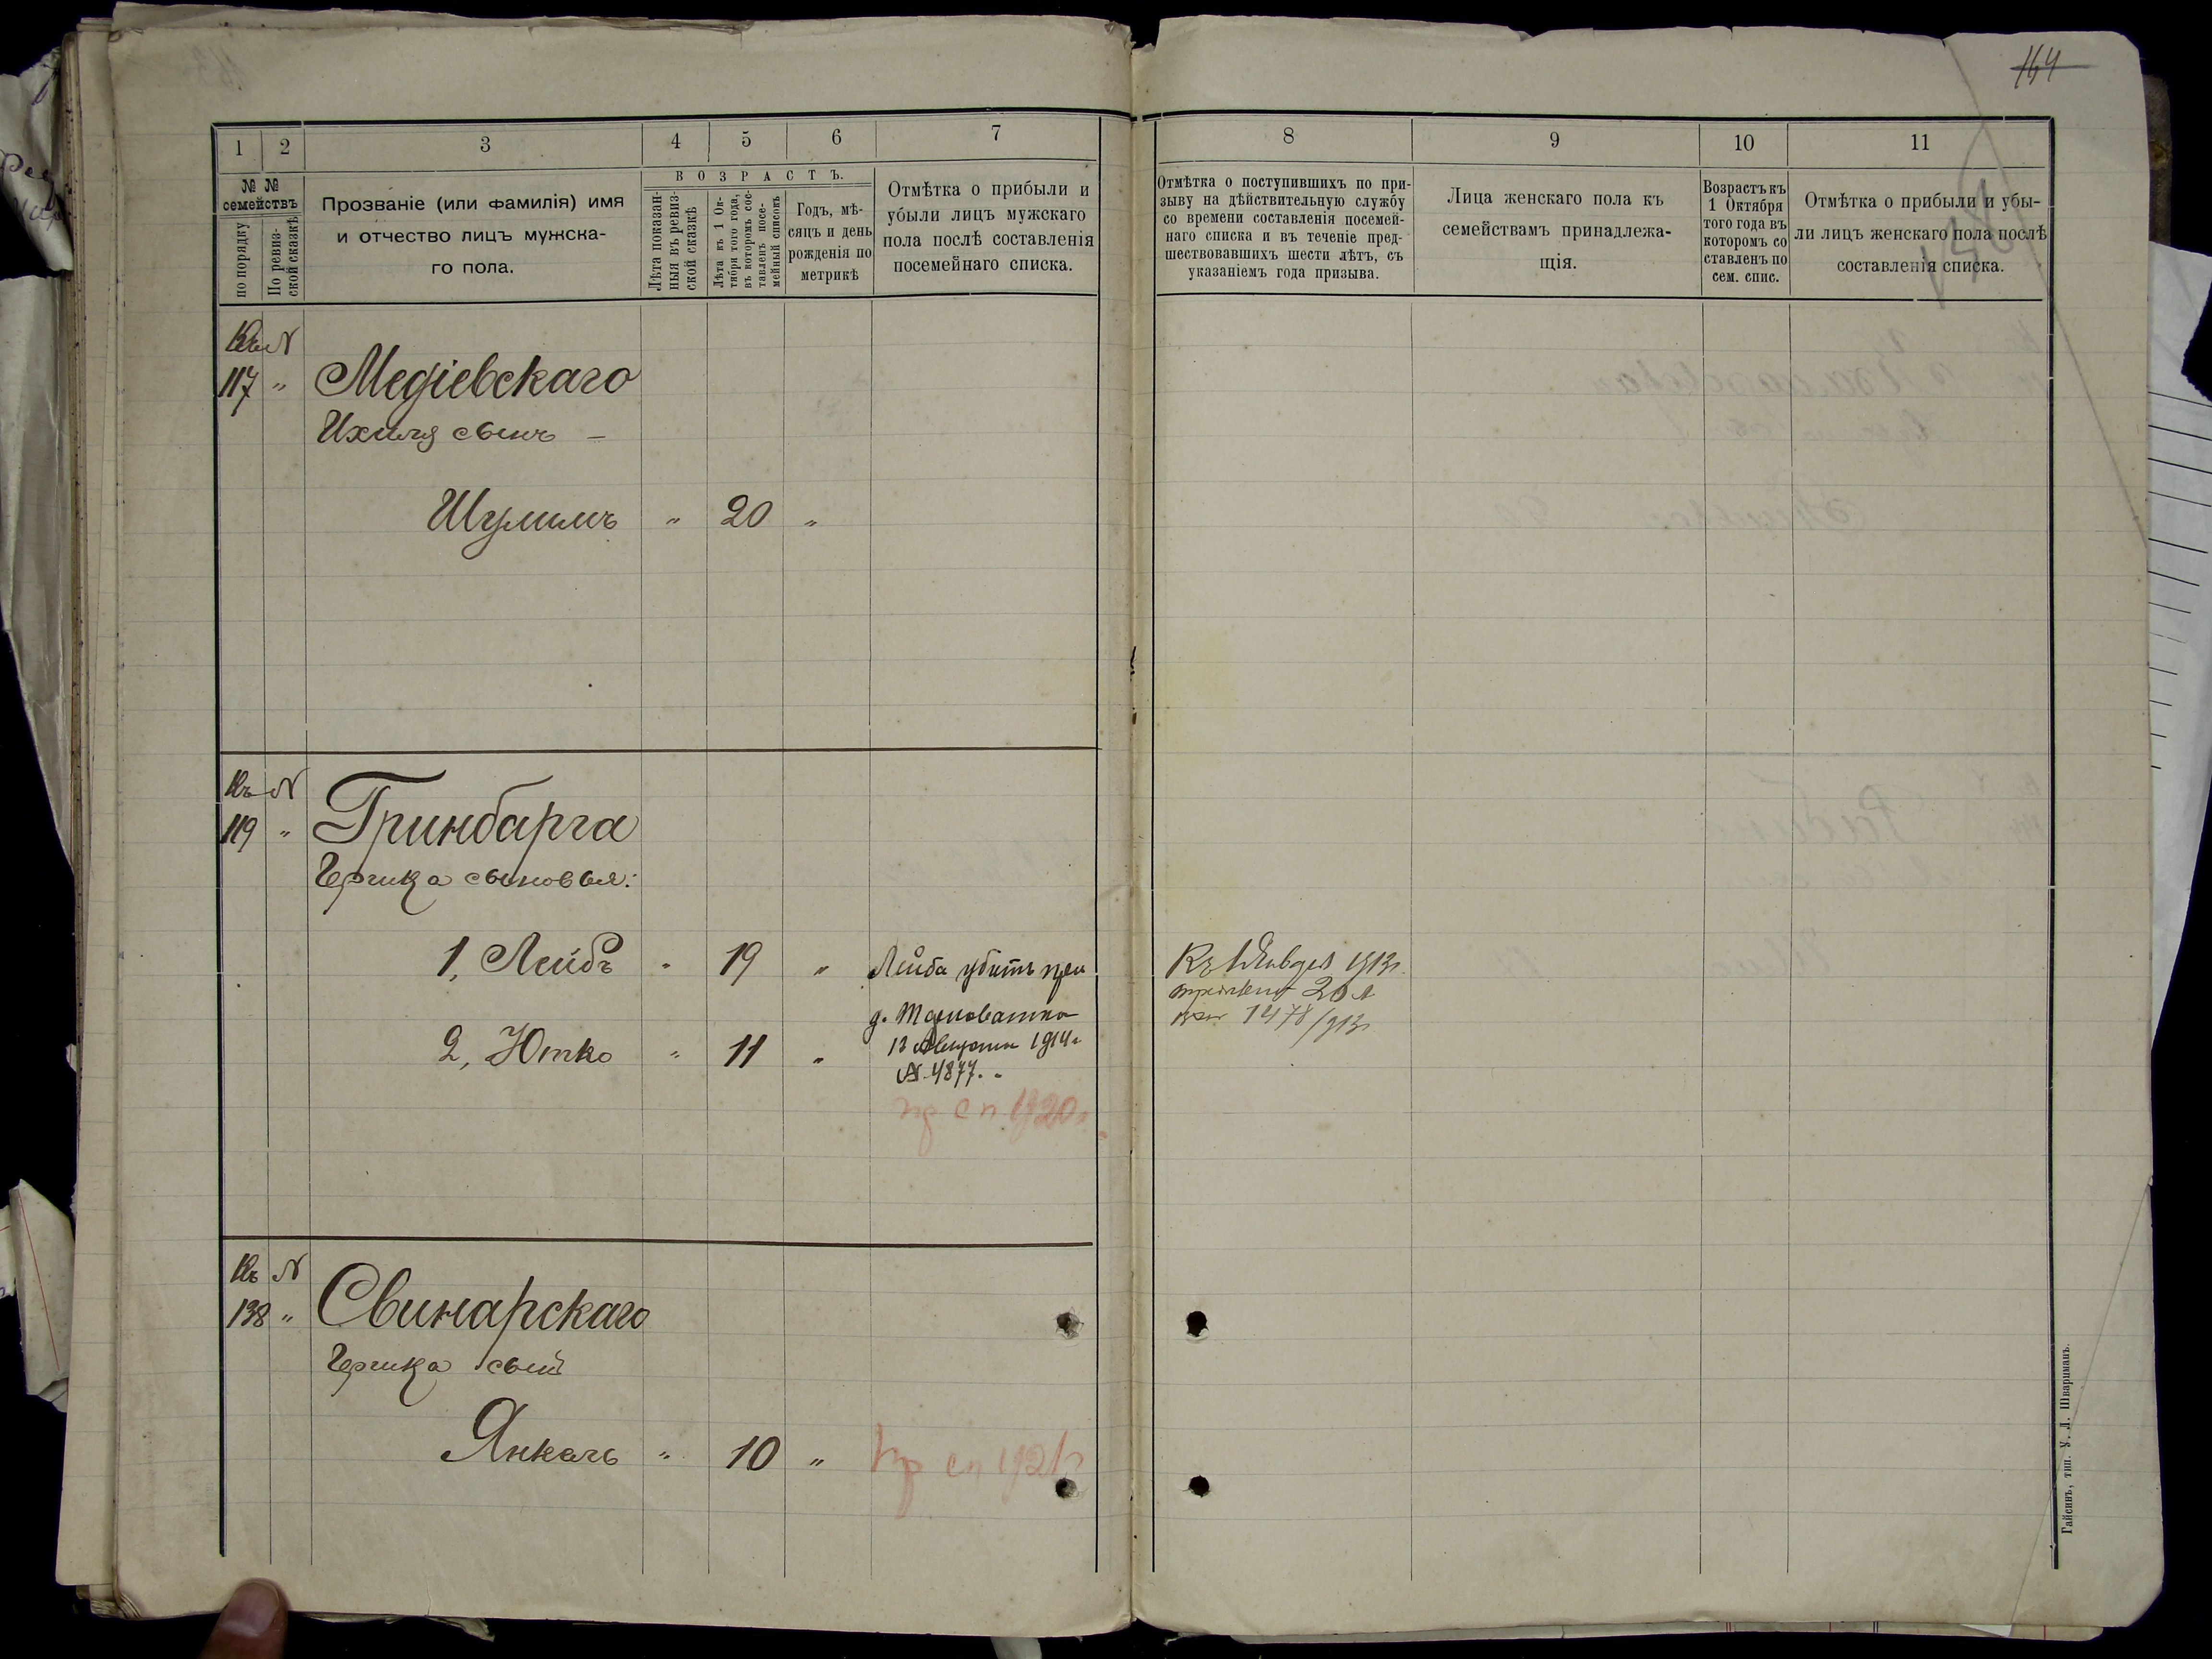 164
1 2 3 4 5 6 7
№ № семействъ
по порядку
По ревиз-
ской сказкѣ
Прозваніе (или фамилія) имя
и отчество лицъ мужска-
го пола.
ВОЗРАСТЪ.
Лѣта показан-
ныя въ ревиз-
ской сказкѣ
Лѣта къ 1 Ок-
тября того года,
въ которомъ сос-
тавленъ посе-
мейный списокъ
Годъ, мѣ-
сяцъ и день
рожденія по
метрикѣ
Отмѣтка о прибыли и
убыли лицъ мужскаго
пола послѣ составленія
посемейнаго списка.
Къ N
117 " Медіевскаго
Ихиля сынъ –
Шулимъ " 20 "
Къ N
119 " Гринбарга
Гершка сыновья:
1, Лейбъ " 19 " Лейба убитъ при
д. Тарноватка
13 Августа 1914 г
N. 4877.
2, Ютко " 11 "
пр сп 1920 г
Къ N
138 " Свинарскаго
Гершка сынъ
Янкель " 10 " Пр сп 1921 г
8 9 10 11
Отмѣтка о поступившихъ по при-
зыву на дѣйствительную службу
со времени составленія посемей-
наго списка и въ теченіе пред-
шествовавшихъ шести лѣтъ, съ
указаніемъ года призыва.
Лица женскаго пола къ
семействамъ принадлежа-
щія.
Возрастъ къ
1 Октября
того года въ
которомъ со
ставленъ по
сем. спис.
Отмѣтка о прибыли и убы-
ли лицъ женскаго пола послѣ
составленія списка.
Къ 1 Января 1913 г.
20 л
1478/913
Гайсинъ, тип. У. Л. Шварцманъ.